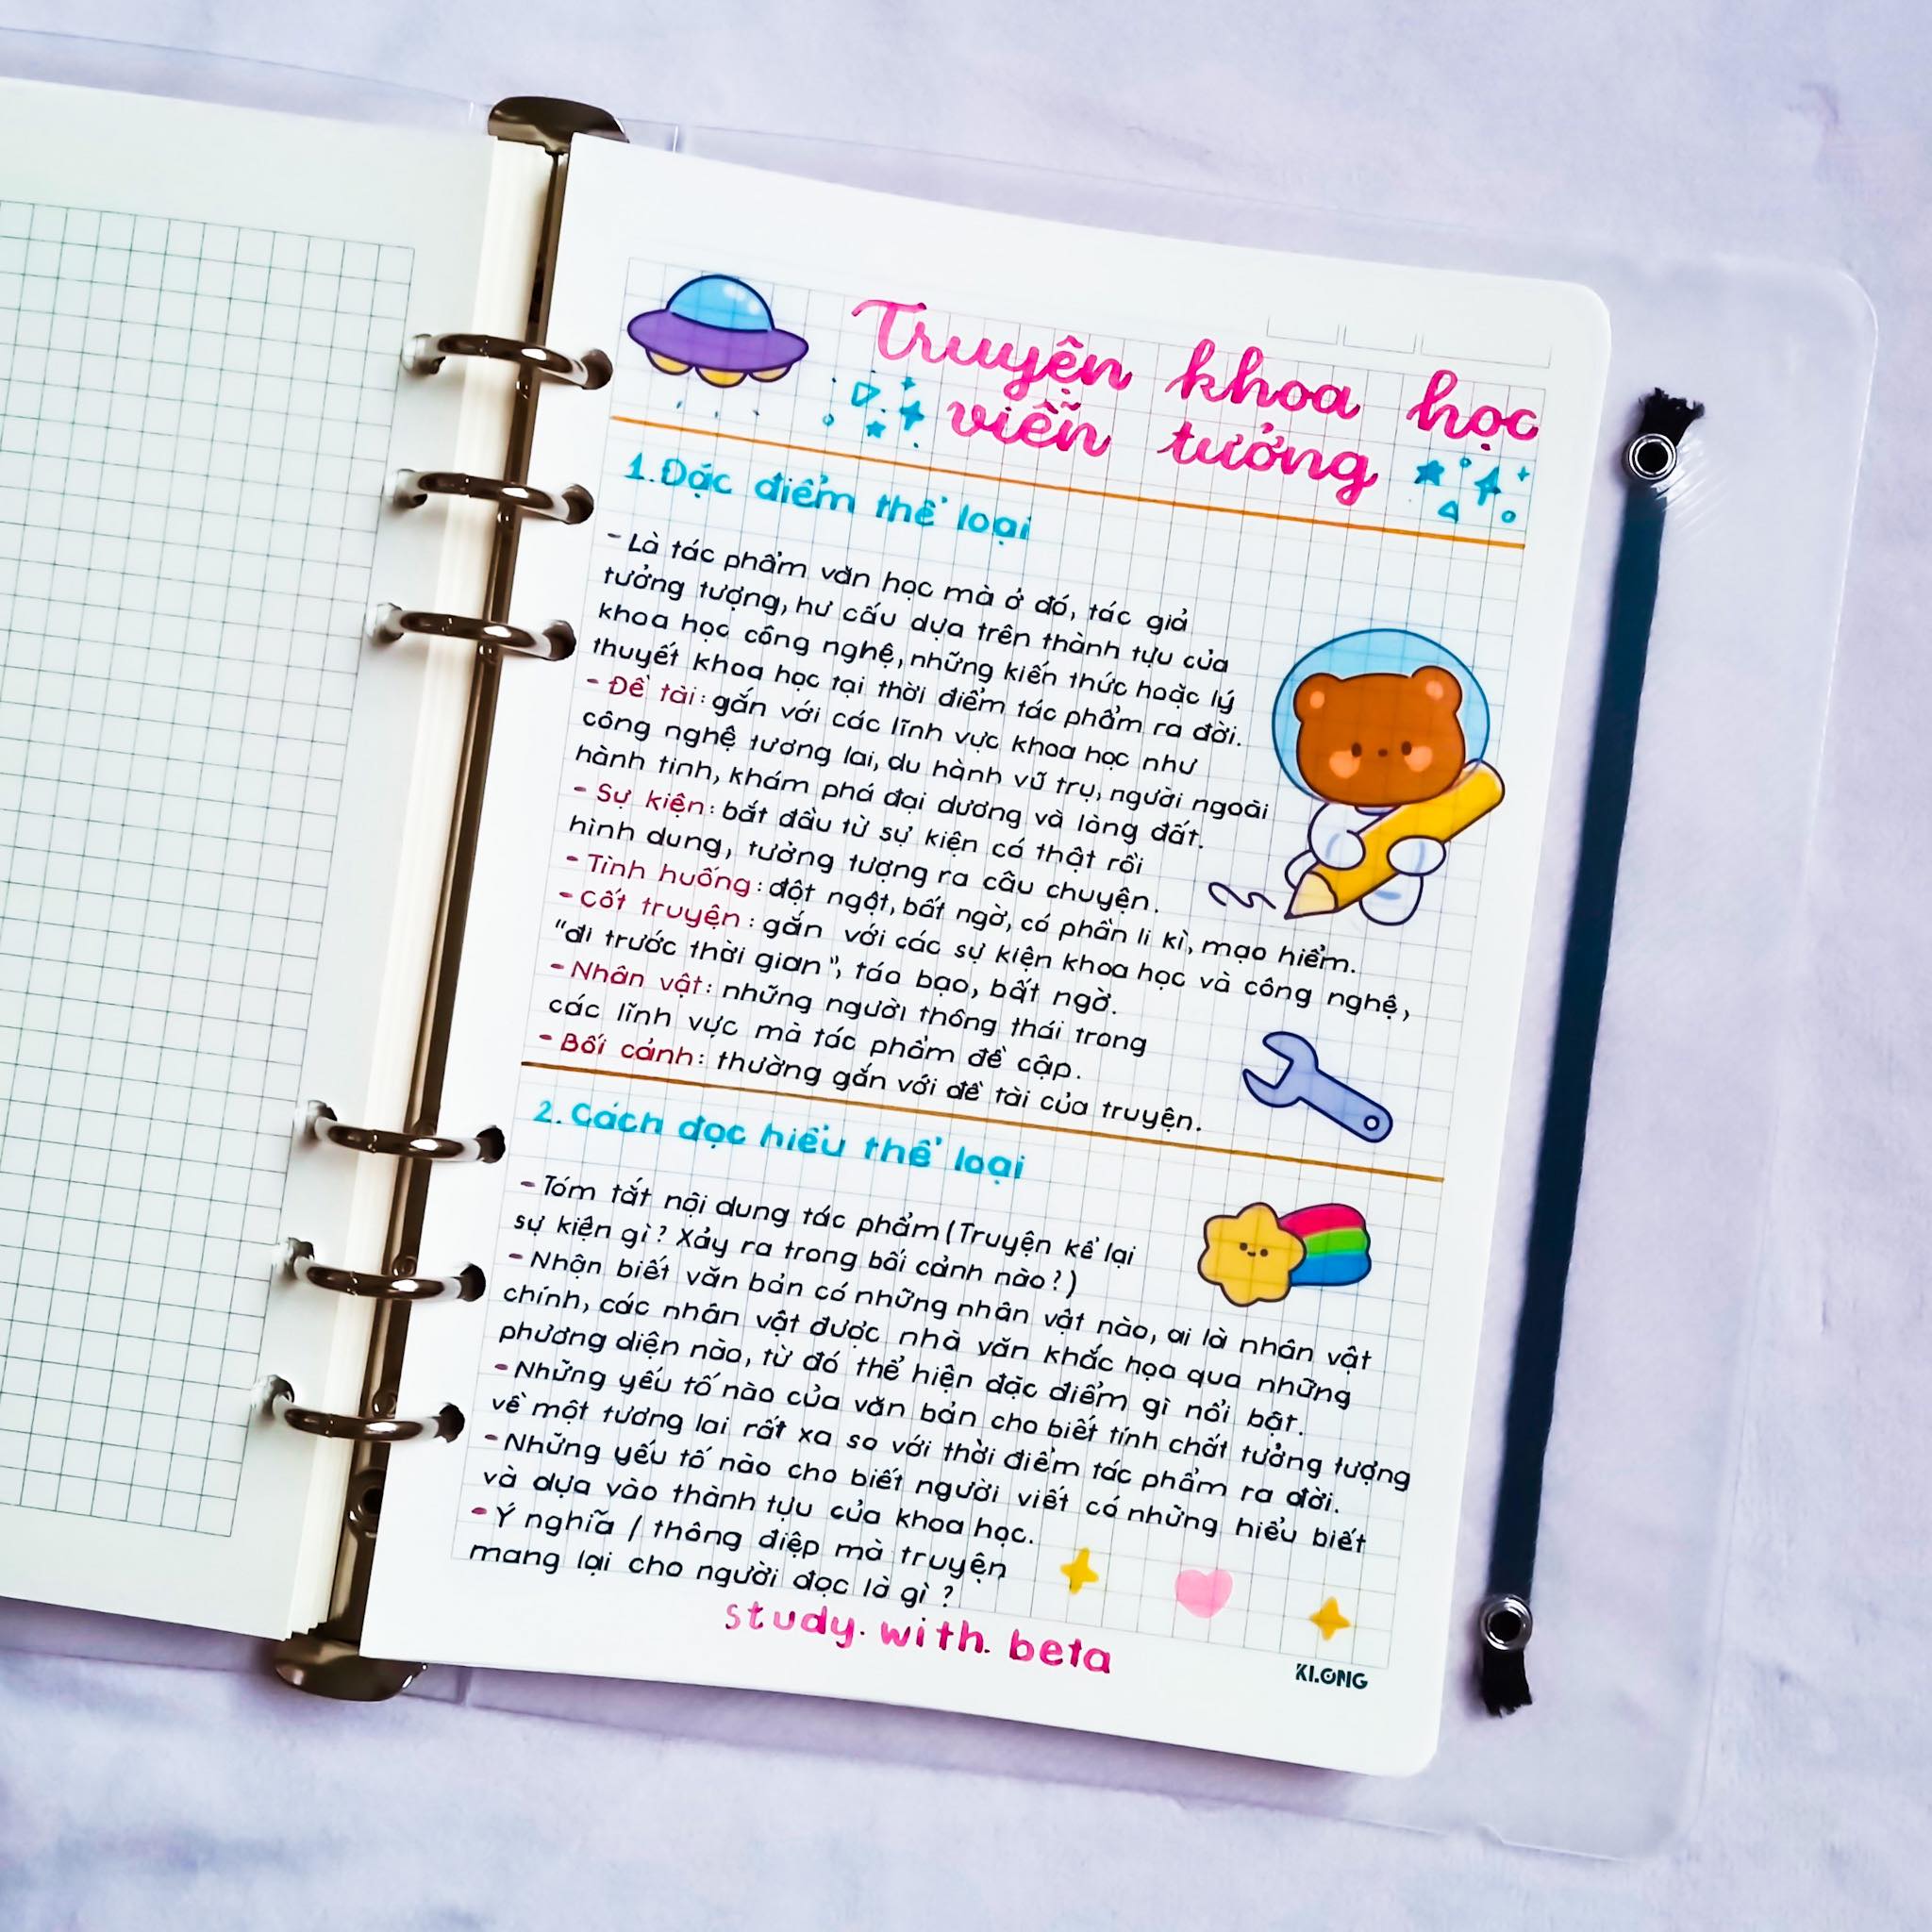 Truyện khoa học
viễn tưởng
1. Đặc điểm thể loại
- Là tác phẩm văn học mà ở đó, tác giả
tưởng tượng, hư cấu dựa trên thành tựu của
khoa học công nghệ, những kiến thức hoặc lý
thuyết khoa học tại thời điểm tác phẩm ra đời.
- Đề tài: gắn với các lĩnh vực khoa học như
công nghệ tương lai, du hành vũ trụ, người ngoài
hành tinh, khám phá đại dương và lòng đất.
- Sự kiện: bắt đầu từ sự kiện có thật rồi
hình dung, tưởng tượng ra câu chuyện.
- Tình huống: đột ngột, bất ngờ, có phần li kì, mạo hiểm.
- Cốt truyện: gắn với các sự kiện khoa học và công nghệ,
"đi trước thời gian", táo bạo, bất ngờ.
- Nhân vật: những người thông thái trong
các lĩnh vực mà tác phẩm đề cập.
- Bối cảnh: thường gắn với đề tài của truyện.
2. Cách đọc hiểu thể loại
- Tóm tắt nội dung tác phẩm (Truyện kể lại
sự kiện gì? Xảy ra trong bối cảnh nào?)
- Nhận biết văn bản có những nhân vật nào, ai là nhân vật
chính, các nhân vật được nhà văn khắc họa qua những
phương diện nào, từ đó thể hiện đặc điểm gì nổi bật.
- Những yếu tố nào của văn bản cho biết tính chất tưởng tượng
về một tương lai rất xa so với thời điểm tác phẩm ra đời.
- Những yếu tố nào cho biết người viết có những hiểu biết
và dựa vào thành tựu của khoa học.
- Ý nghĩa / thông điệp mà truyện
mang lại cho người đọc là gì?
study.with.beta
KLONG